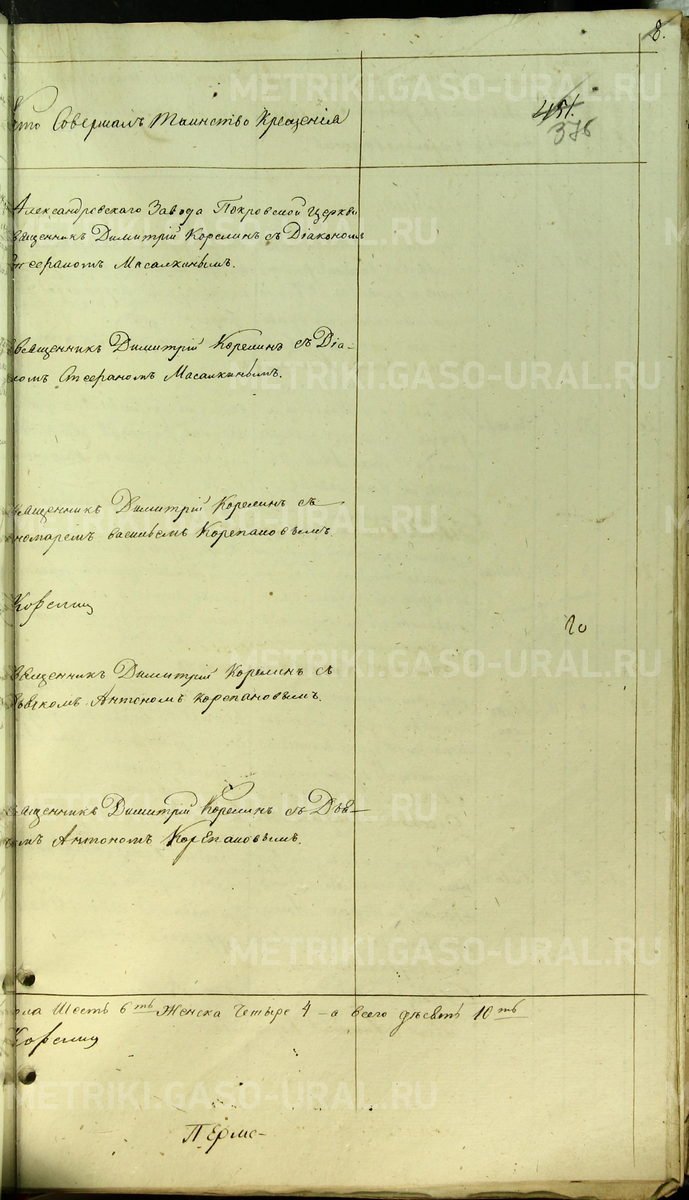 8.
Кто Совершалъ Таинство Крещенія
451.
376
Александровскаго Завода Покровской Церкви
священникъ Димитрій Корелинъ съ Діакономъ
Стефаномъ Масалкинымъ.
Священникъ Димитрій Корелинъ съ Діа-
кономъ Стефаномъ Масалкинымъ.
Священникъ Димитрій Корелинъ съ
пономаремъ Васильемъ Корепановымъ.
Корелинъ
20
Священникъ Димитрій Корелинъ съ
Дьячкомъ Антономъ Корепановымъ.
Священникъ Димитрій Корелинъ съ Дья-
Антономъ Корепановымъ.
пола Шесть 6ть Женска Четыре 4 - а всего десеть 10ть
Корелинъ
Перме-
METRIKI.GASO-URAL.RU